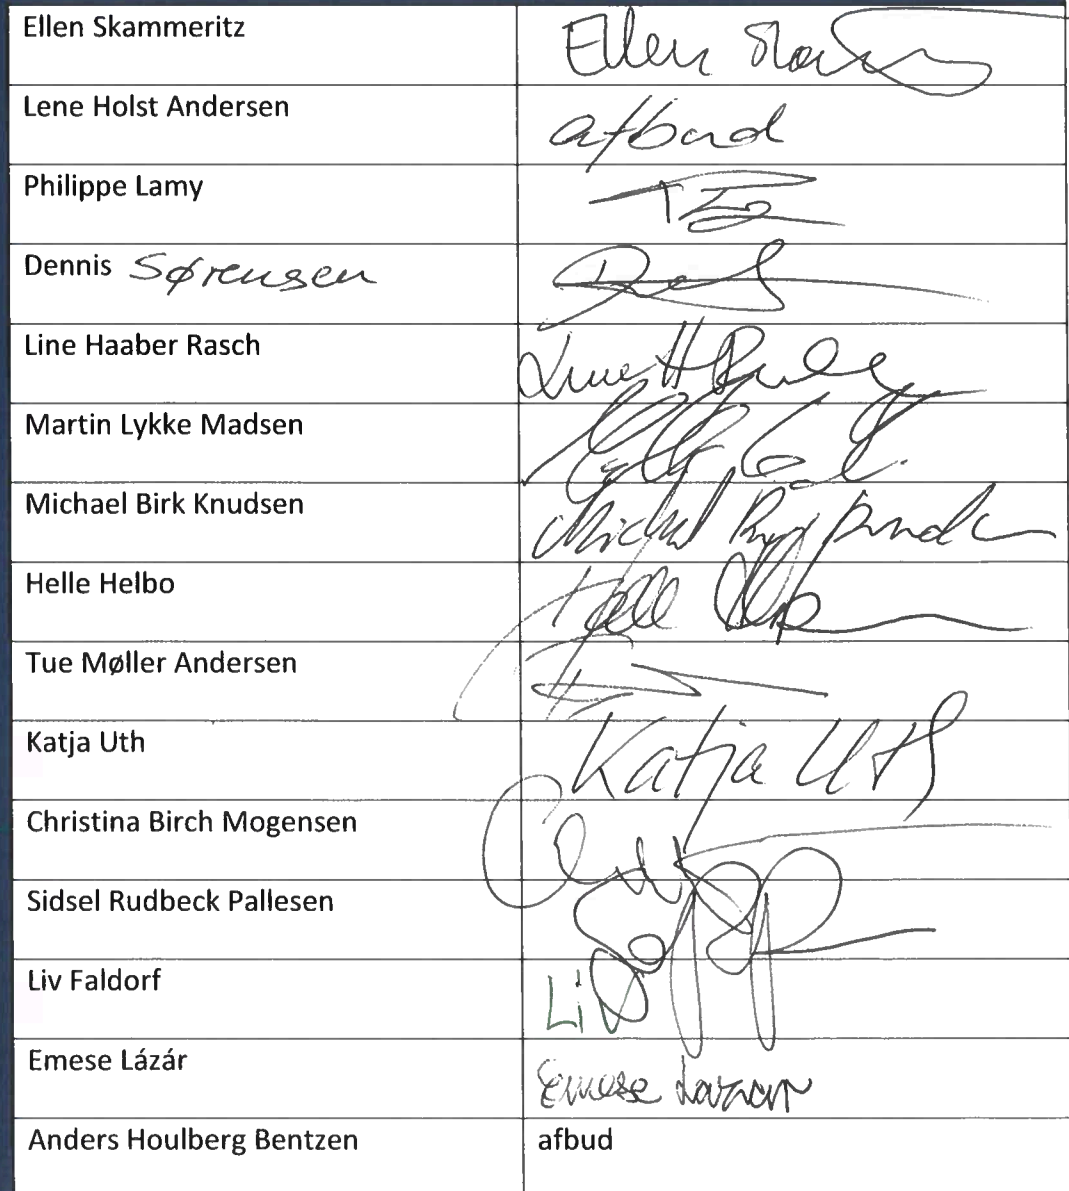 Ellen Skammeritz Ellen
Lene Holst Andersen afbud
Philippe Lamy
Dennis Sørensen
Line Haaber Rasch Line H
Martin Lykke Madsen
Michael Birk Knudsen Michael
Helle Helbo Helle
Tue Møller Andersen
Katja Uth Katja Uth
Christina Birch Mogensen
Sidsel Rudbeck Pallesen
Liv Faldorf Liv
Emese Lázár Emese Lazar
Anders Houlberg Bentzen afbud